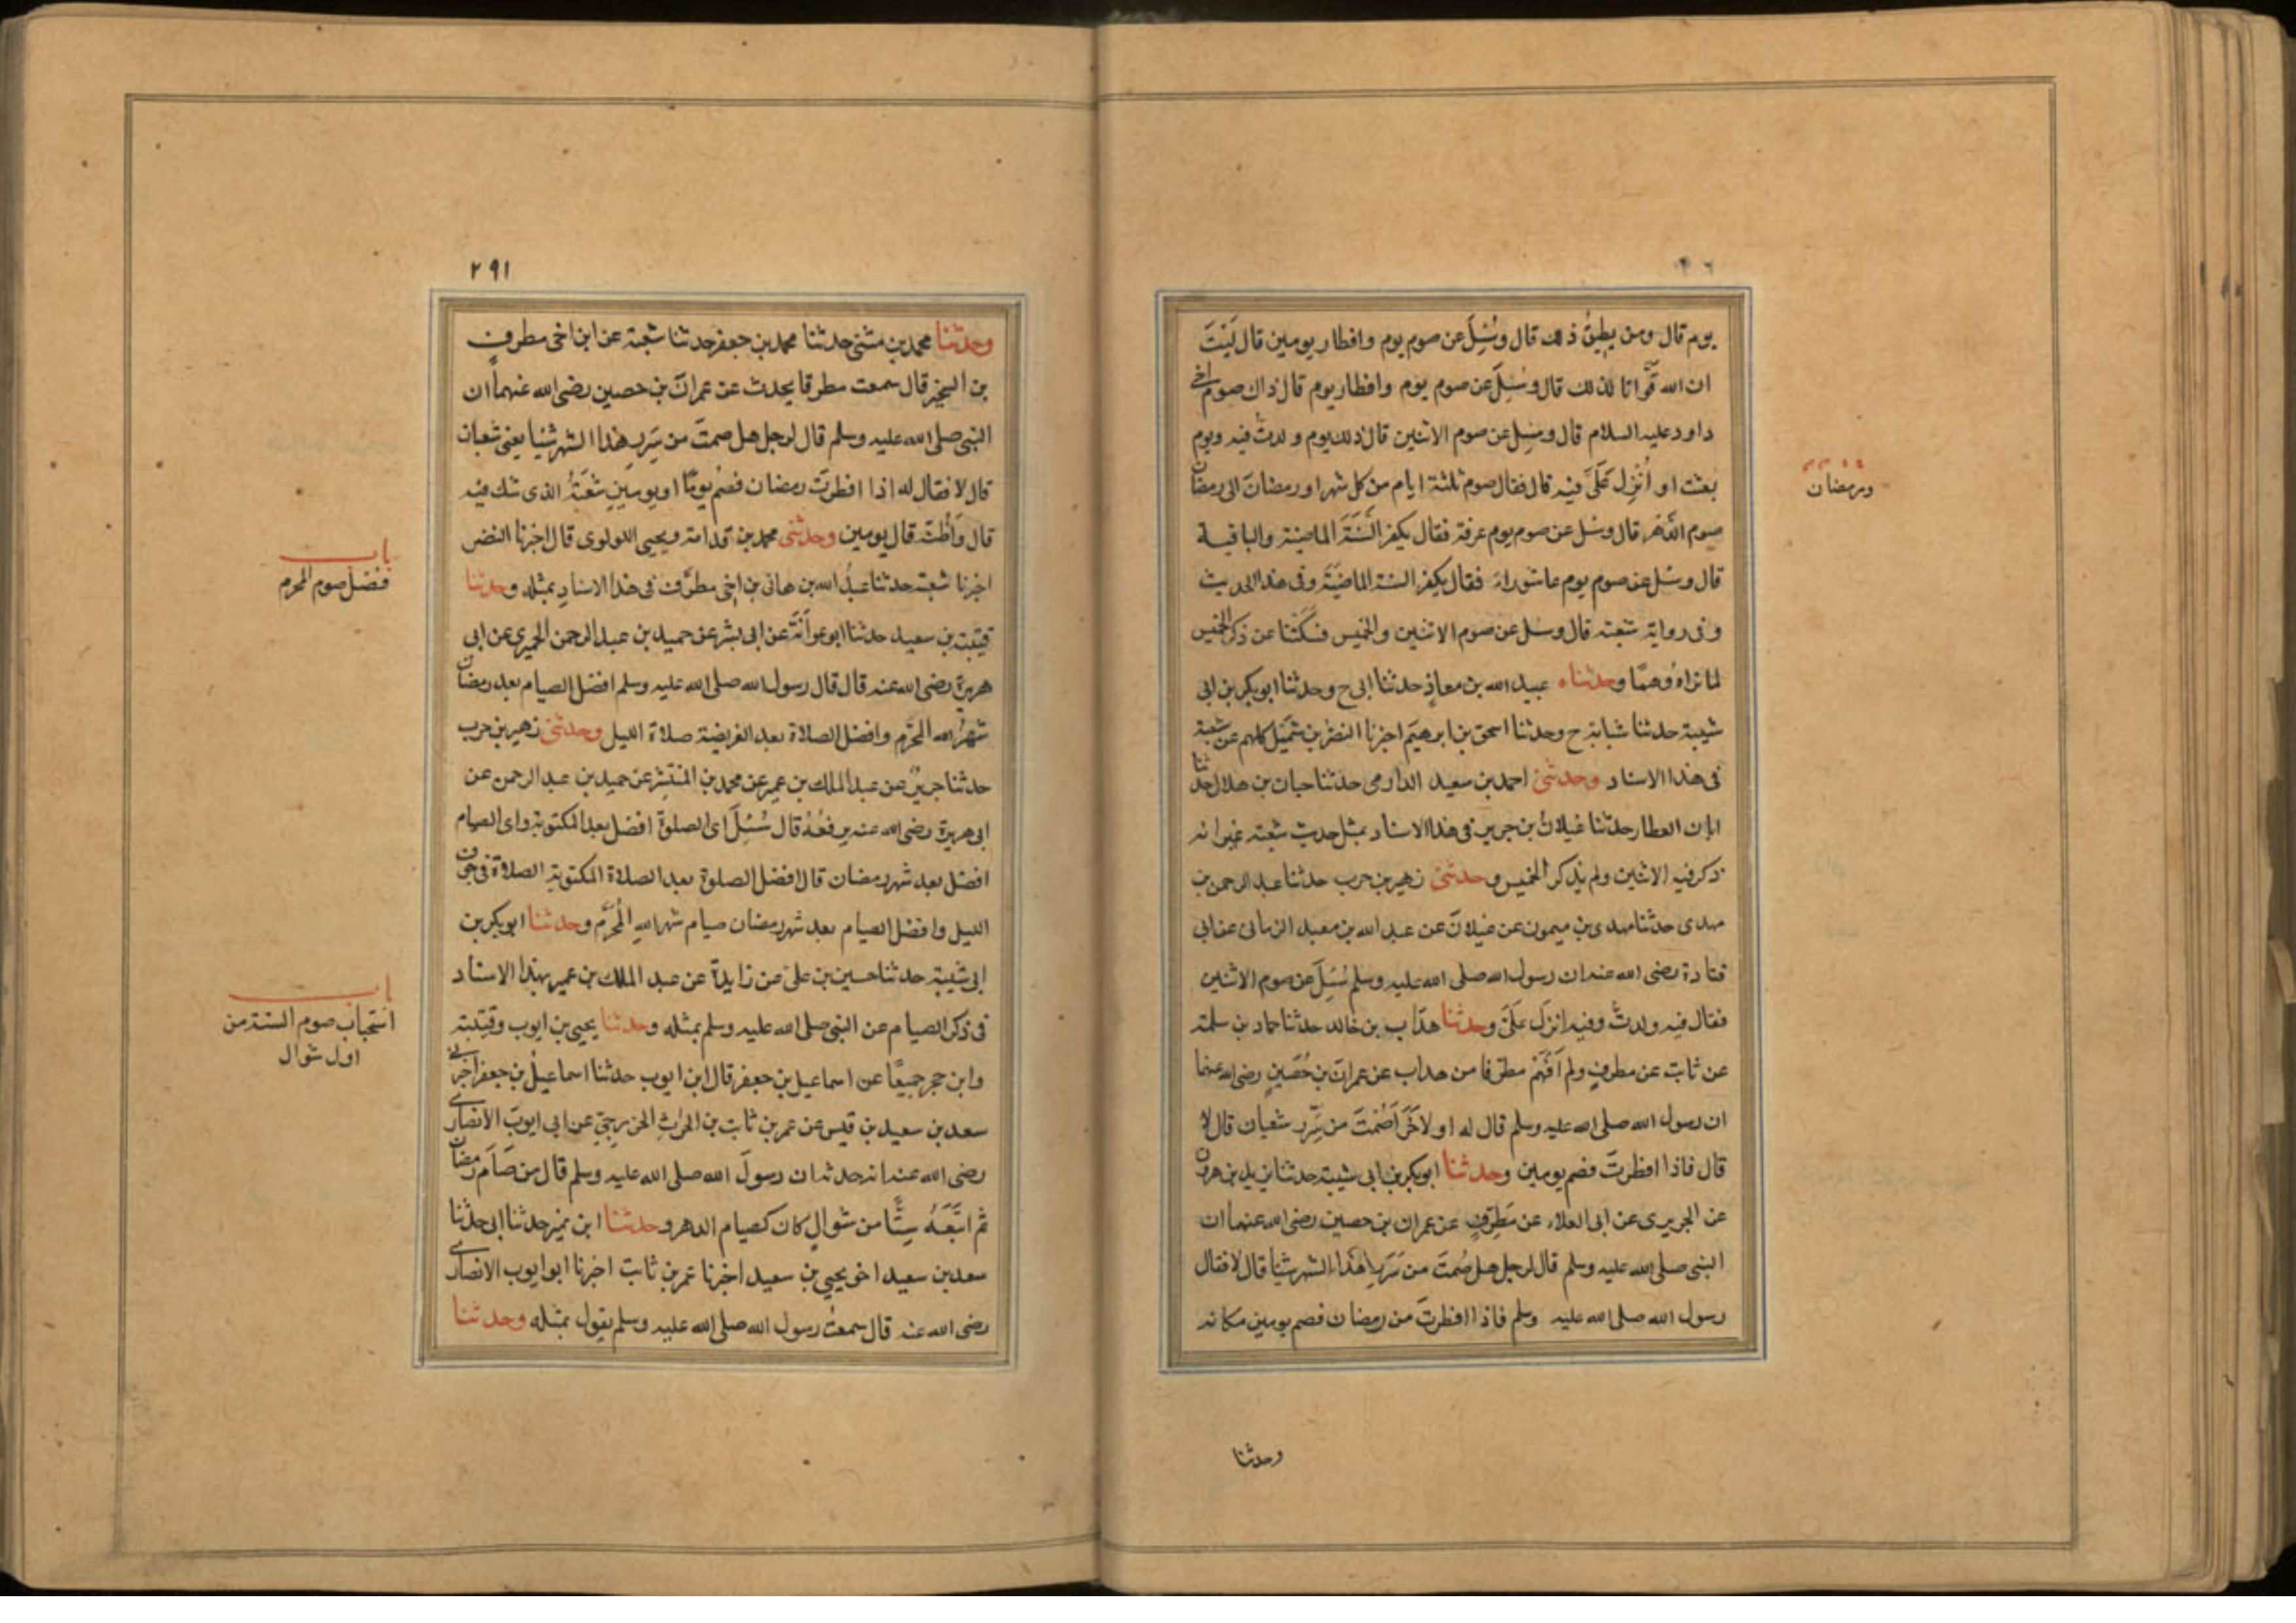 يوم قال ومن يطيق ذلك قال وسُئِلَ عن صوم يوم وافطار يومين قال لَيْتَ
ان الله قوّانا لذلك قال وسُئِلَ عن صوم يوم وافطار يوم قال ذاك صوم اخى
داود عليه السلام قال وسُئِل عن صوم الاثنين قال ذلك يوم ولدتُ فيه ويوم
بعثت او اُنْزِل عَلَىَّ فيه قال فقال صوم ثلثة ايام من كل شهر او رمضان الى رمضان
صوم الدّهر قال وسئل عن صوم يوم عرفة فقال يكفر السَّنَةَ الماضية والباقية
قال وسئل عن صوم يوم عاشوراء فقال يكفر السنة الماضيَةَ وفى هذا الحديث
وفى رواية شعبة قال وسئل عن صوم الاثنين والخميس فسكتنا عن ذكر الخميس
لما نراهُ وهمًا وحدثناه عبيد الله بن معاذٍ حدثنا ابى ح وحدثنا ابو بكر بن ابى
شيبة حدثنا شبابة ح وحدثنا اسحق بن ابرهيم اخبرنا النضر بن شُمَيْل كلهم عن شعبة
فى هذا الاسناد وحدثنى احمد بن سعيد الدارمى حدثنا حبان بن هلال حدثنا
ابان العطار حدثنا غيلانُ بن جرير فى هذا الاسناد بمثل حديث شعبة غير انه
ذكر فيه الاثنين ولم يذكر الخميس وحدثنى زهير بن حرب حدثنا عبد الرحمن بن
مهدى حدثنا مهدى بن ميمون عن غيلانَ عن عبد الله بن معبد الزمانى عن ابى
قتادة رضى الله عنه ان رسول الله صلى الله عليه وسلم سُئِلَ عن صوم الاثنين
فقال فيه ولدتُ وفيه انزل عَلَىَّ وحدثنا هدّاب بن خالد حدثنا حماد بن سلمة
عن ثابت عن مطرفٍ ولم اَفْهَمْ مطرّفا من هداب عن عمرانَ بن حُصَيْنٍ رضى الله عنهما
ان رسول الله صلى الله عليه وسلم قال له او لآخَرَ اَصُمْتَ من سُرَرِ شعبان قال لا
قال فاذا افطرتَ فصم يومين وحدثنا ابو بكر بن ابى شيبة حدثنا يزيد بن هرون
عن الجريرى عن ابى العلاء عن مُطرّفٍ عن عمران بن حصين رضى الله عنهما ان
النبى صلى الله عليه وسلم قال لرجل هل صُمتَ من سُرَرِ هٰذا الشهر شيأ قال لا فقال
رسول الله صلى الله عليه وسلم فاذا افطرتَ من رمضان فصم يومين مكانه
ورمضان
وحدثنا
٢٩١
وحدثنا محمد بن مثنى حدثنا محمد بن جعفر حدثنا شعبة عن ابن اخى مطرفٍ
بن الشخير قال سمعت مطرفا يحدث عن عمرانَ بن حصين رضى الله عنهما ان
النبى صلى الله عليه وسلم قال لرجل هل صمتَ من سُرَرِ هٰذا الشهر شيأ يعنى شعبان
قال لا فقال له اذا افطرتَ رمضان فصُم يومًا او يومينِ شعبَةُ الذى شك فيه
قال وَاَظُنُّهُ قال يومين وحدثنى محمد بن قدامة ويحيى اللولوى قال اخبرنا النضر
اخبرنا شعبة حدثنا عبدُ الله بن هانى بن اخى مطرّف فى هذا الاسنادِ بمثله وحدثنا
قتيبة بن سعيد حدثنا ابو عوانَةَ عن ابى بشر عن حميد بن عبد الرحمن الحميرى عن ابى
هريرة رضى الله عنه قال قال رسول الله صلى الله عليه وسلم افضل الصيام بعد رمضان
شهرُ الله المحرّم وافضل الصلاة بعد الفريضة صلاة الليل وحدثنى زهير بن حرب
حدثنا جريرٌ عن عبد الملك بن عمير عن محمد بن المنتشِر عن حميد بن عبد الرحمن عن
ابى هريرة رضى الله عنه يرفعُهُ قال سُئِلَ اى الصلوة افضل بعد المكتوبة واى الصيام
افضل بعد شهر رمضان قال افضل الصلوة بعد الصلاة المكتوبة الصلاة فى جوف
الليل وافضل الصيام بعد شهر رمضان صيام شهر اللهِ المُحَرَّم وحدثنا ابو بكر بن
ابى شيبة حدثنا حسين بن على عن زايدة عن عبد الملك بن عمير بهذا الاسناد
فى ذكر الصيام عن النبى صلى الله عليه وسلم بمثله وحدثنا يحيى بن ايوب وقتيبة
وابن حجر جميعًا عن اسماعيل بن جعفر قال ابن ايوب حدثنا اسماعيلُ بن جعفر اخبرنى
سعد بن سعيد بن قيس عن عمر بن ثابت بن الحٰرثِ الخزرجىّ عن ابى ايوبَ الانصارى
رضى الله عنه انه حدثه ان رسولَ الله صلى الله عليه وسلم قال من صَامَ رمضان
ثم اتبَعَهُ سِتًّا من شوالٍ كان كصيام الدهر وحدثنا ابن نمير حدثنا ابى حدثنا
سعد بن سعيد اخو يحيى بن سعيد اخبرنا عمر بن ثابت اخبرنا ابو ايوب الانصارى
رضى الله عنه قال سمعتُ رسول الله صلى الله عليه وسلم يقول بمثله وحدثنا
باب
فضل صوم المحرم
باب
استحباب صوم الستة من
اول شوال